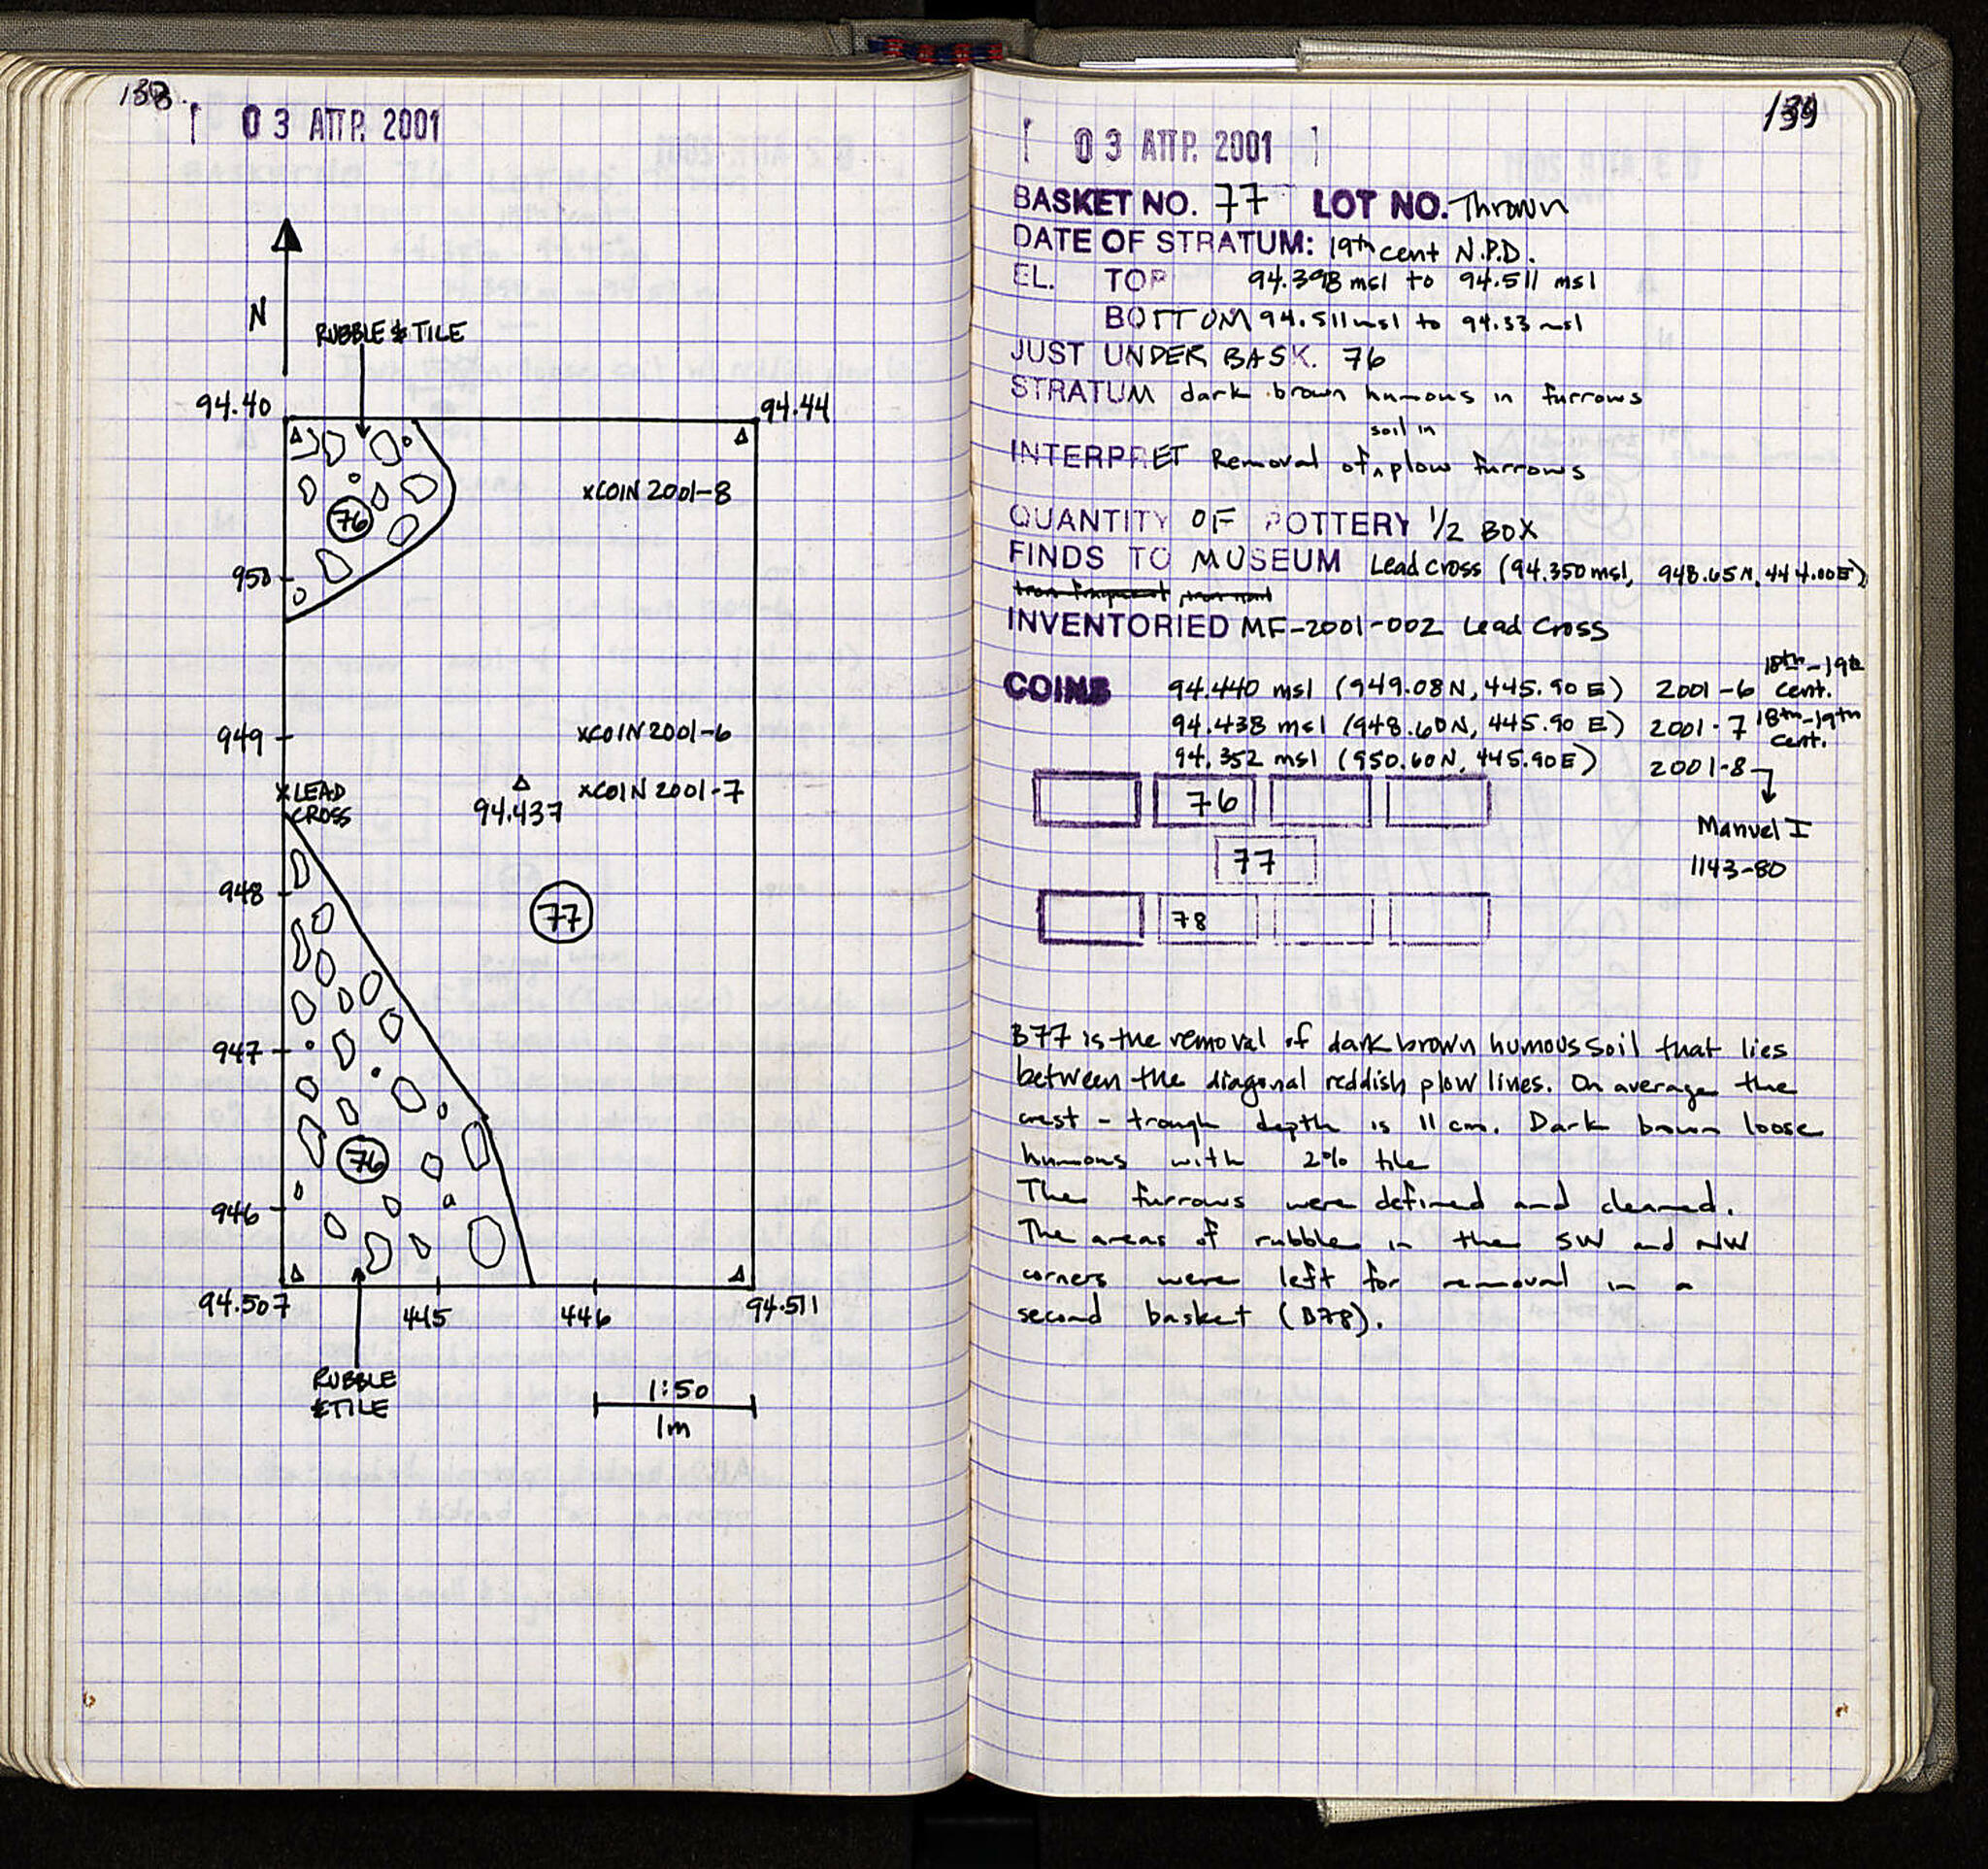 138.
03 ΑΠΡ. 2001
N
RUBBLE & TILE
94.40
94.44
76
xCOIN 2001-8
950
949
xCOIN 2001-6
x LEAD
CROSS
94.437
xCOIN 2001-7
948
77
947
76
946
94.507
445
446
94.511
RUBBLE
& TILE
1:50
1m
139
03 ΑΠΡ. 2001
BASKET NO. 77 LOT NO. Thrown
DATE OF STRATUM: 19th cent N.P.D.
EL. TOP 94.398 msl to 94.511 msl
BOTTOM 94.511 msl to 94.33 msl
JUST UNDER BASK. 76
STRATUM dark brown humous in furrows
soil in
INTERPRET Removal of ^ plow furrows
QUANTITY OF POTTERY 1/2 BOX
FINDS TO MUSEUM Lead cross (94.350 msl, 948.65N, 444.00E)
iron fragment, iron nail
INVENTORIED MF-2001-002 Lead Cross
COINS 94.440 msl (949.08N, 445.90 E) 2001-6 18th-19th cent.
94.438 msl (948.60N, 445.90 E) 2001-7 18th-19th cent.
94.352 msl (950.60N, 445.90E) 2001-8
76
Manuel I
1143-80
77
78
B77 is the removal of dark brown humous soil that lies
between the diagonal reddish plow lines. On average the
crest - trough depth is 11 cm. Dark brown loose
humous with 2% tile
The furrows were defined and cleaned.
The areas of rubble in the SW and NW
corners were left for removal in a
second basket (B78).